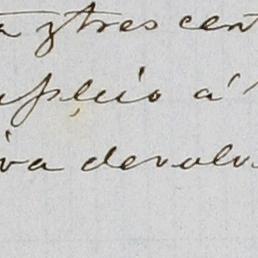 a ztres cent
uplcio á
iva devolv